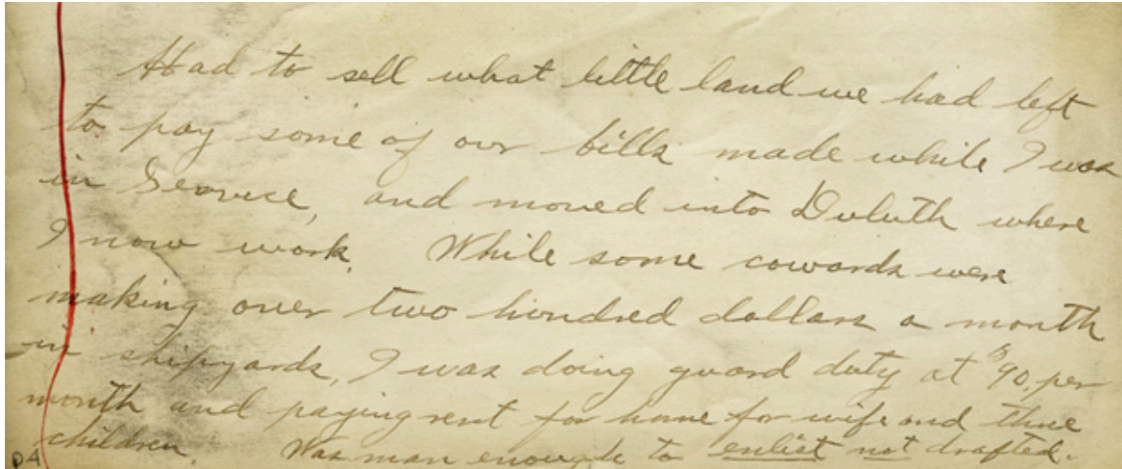 Had to sell what little land we had left
to pay some of our bills made while I was
in Service, and moved into Duluth where
I now work. While some cowards were
making over two hundred dollars a month
in shipyards, I was doing guard duty at $90. per
month and paying rent for home for wife and three
children. Was man enough to enlist not drafted.
p4